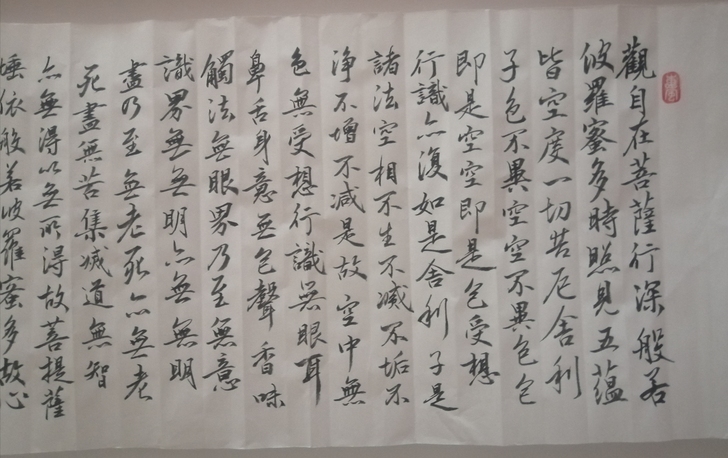 觀自在菩薩行深般若
波羅蜜多時照見五蘊
皆空度一切苦厄舍利
子色不異空空不異色色
即是空空即是色受想
行識亦復如是舍利子是
諸法空相不生不滅不垢不
淨不增不減是故空中無
色無受想行識無眼耳
鼻舌身意无色聲香味
觸法無眼界乃至無意
識界無無明亦無無明
盡乃至無老死亦無老
死盡無苦集滅道無智
亦無得以无所得故菩提薩
埵依般若波羅蜜多故心